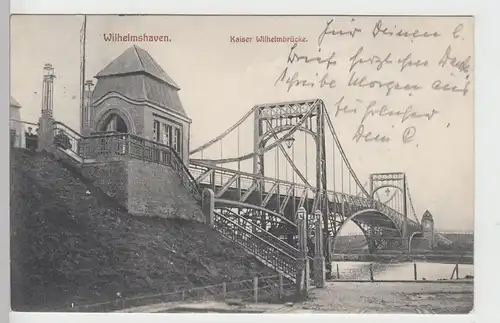 Wilhelmshaven.
Kaiser Wilhelmbrücke.
Für Deinen l.
Brief herzl. Dank
Schreibe Morgen aus
Dein C